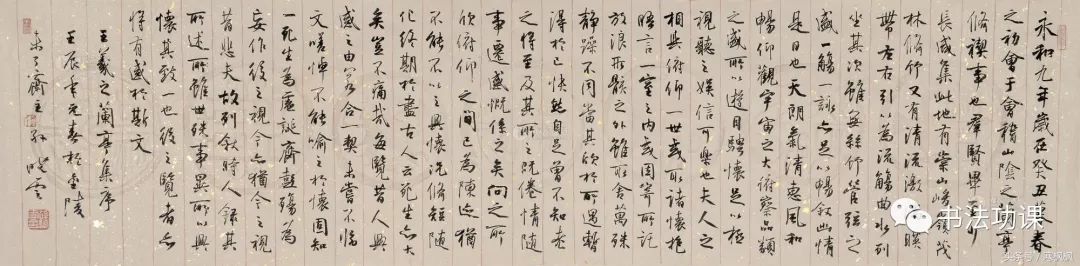 永和九年歲在癸丑暮春
之初會于會稽山陰之蘭亭
脩禊事也羣賢畢至少
長咸集此地有崇山峻領茂
林脩竹又有清流激湍暎
帶左右引以為流觴曲水列
坐其次雖無絲竹管弦之
盛一觴一詠亦足以暢敘幽情
是日也天朗氣清惠風和
暢仰觀宇宙之大俯察品類
之盛所以遊目騁懷足以極
視聽之娛信可樂也夫人之
相與俯仰一世或取諸懷抱
晤言一室之內或因寄所託
放浪形骸之外雖取舍萬殊
靜躁不同當其欣於所遇暫
得於己快然自足曾不知老
之將至及其所之既倦情隨
事遷感慨係之矣向之所
欣俯仰之間已為陳迹猶
不能不以之興懷況脩短隨
化終期於盡古人云死生亦大
矣豈不痛哉每覽昔人興
感之由若合一契未嘗不臨
文嗟悼不能喻之於懷固知
一死生為虛誕齊彭殤為
妄作後之視今亦猶今之視
昔悲夫故列敘時人錄其
所述雖世殊事異所以興
懷其致一也後之覽者亦
將有感於斯文
王羲之蘭亭集序
壬辰年元春於金陵
未了齋主孫曉雲
书法功课